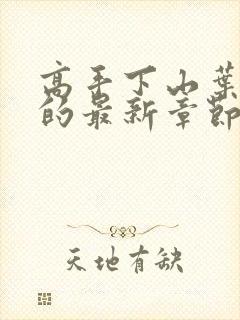 高手下山葉
的最新章節
天地有缺